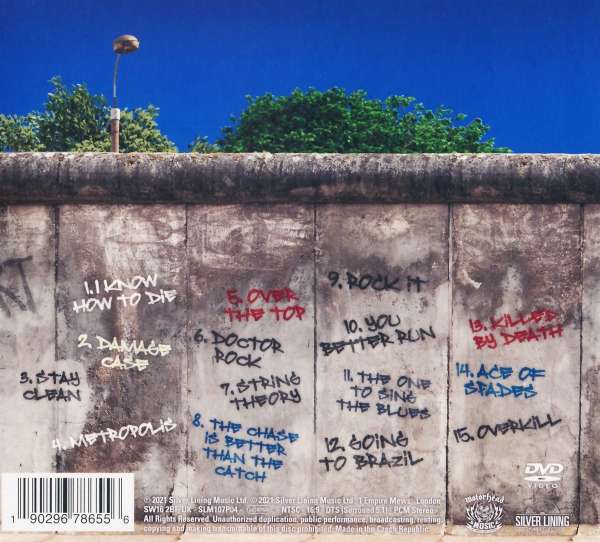 1. I KNOW
HOW TO DIE
2. DAMAGE
CASE
3. STAY
CLEAN
4. METROPOLIS
5. OVER
THE TOP
6. DOCTOR
ROCK
7. STRING
THEORY
8. THE CHASE
IS BETTER
THAN THE
CATCH
9. ROCK IT
10. YOU
BETTER RUN
11. THE ONE
TO SING
THE BLUES
12. GOING
TO BRAZIL
13. KILLED
BY DEATH
14. ACE OF
SPADES
15. OVERKILL
1 90296 78655 6
℗ 2021 Silver Lining Music Ltd. © 2021 Silver Lining Music Ltd, 1 Empire Mews, London,
SW16 2BF, UK - SLM107P04 - NTSC - 16:9 - DTS (Surround 5.1) - PCM Stereo
All Rights Reserved. Unauthorized duplication, public performance, broadcasting, renting,
copying and making transmittable of this disc prohibited. Made in the Czech Republic.
DVD
VIDEO
motörhead
MUSIC
SILVER LINING